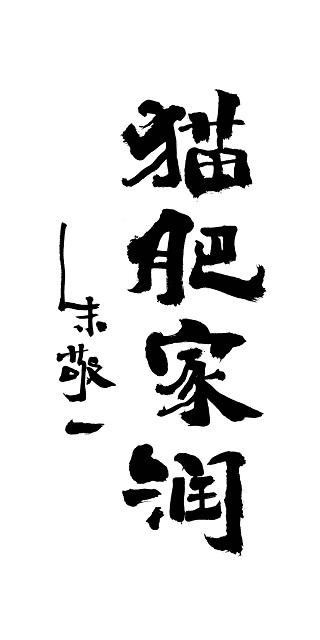 猫肥家润
朱敬一